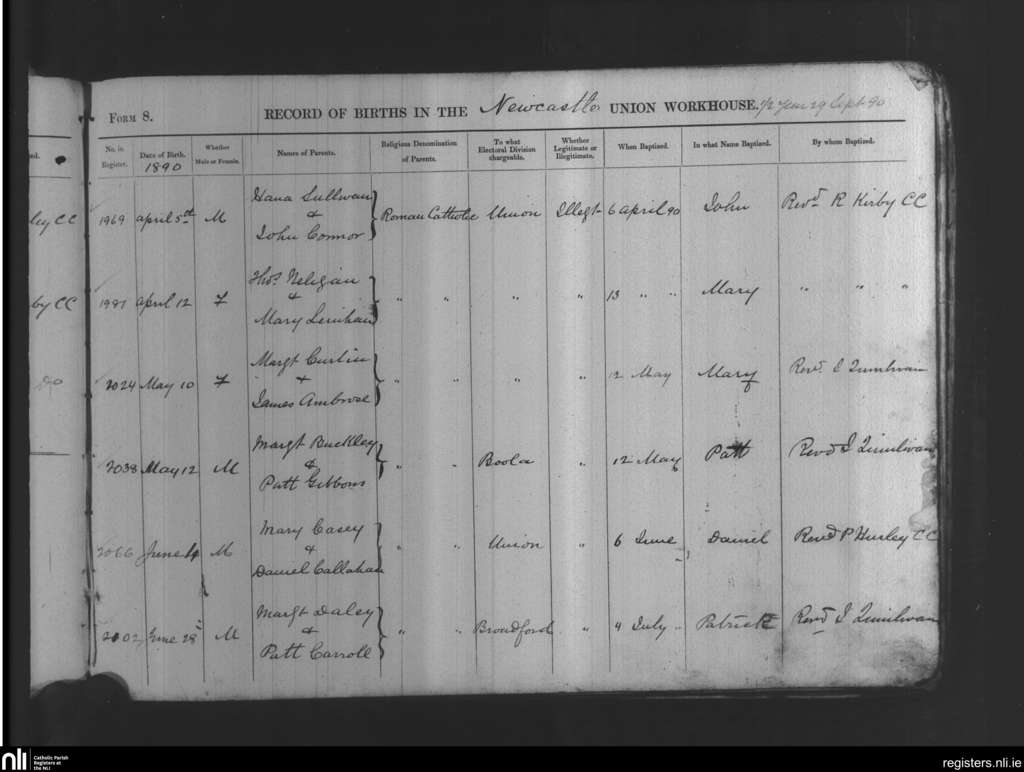 FORM 8.
RECORD OF BIRTHS IN THE Newcastle UNION WORKHOUSE. 1/2 year 29 Sept 90
ed.
No. in Register. Date of Birth. 1890 Whether Male or Female. Names of Parents. Religious Denomination of Parents. To what Electoral Division chargeable. Whether Legitimate or Illegitimate. When Baptized. In what Name Baptized. By whom Baptized.
ley CC
Hana Sullivan
1969 april 5th M & Roman Catholic Union Illegt 6 april 90 John Revd. R Kirby CC
John Connor
by CC
Thos. Neligan
1987 april 12 F & " " " " 13 " " Mary " " "
Mary Linihan
Do
Margt Curtin
2024 May 10 F + " " " " 12 May Mary Revd.
James Ambrose
Margt Buckley
2038 May 12 M & " " Boola " 12 May Patt Revd
Patt Gibbons
Mary Casey
2066 June 4 M & " " Union " 6 June Daniel Revd P Hurley CC
Daniel Callahan
Margt Daley
June 28 M & " " Broadford " 4 July " Patrick Revd
Patt Carroll
nli Catholic Parish
Registers at
the NLI
registers.nli.ie